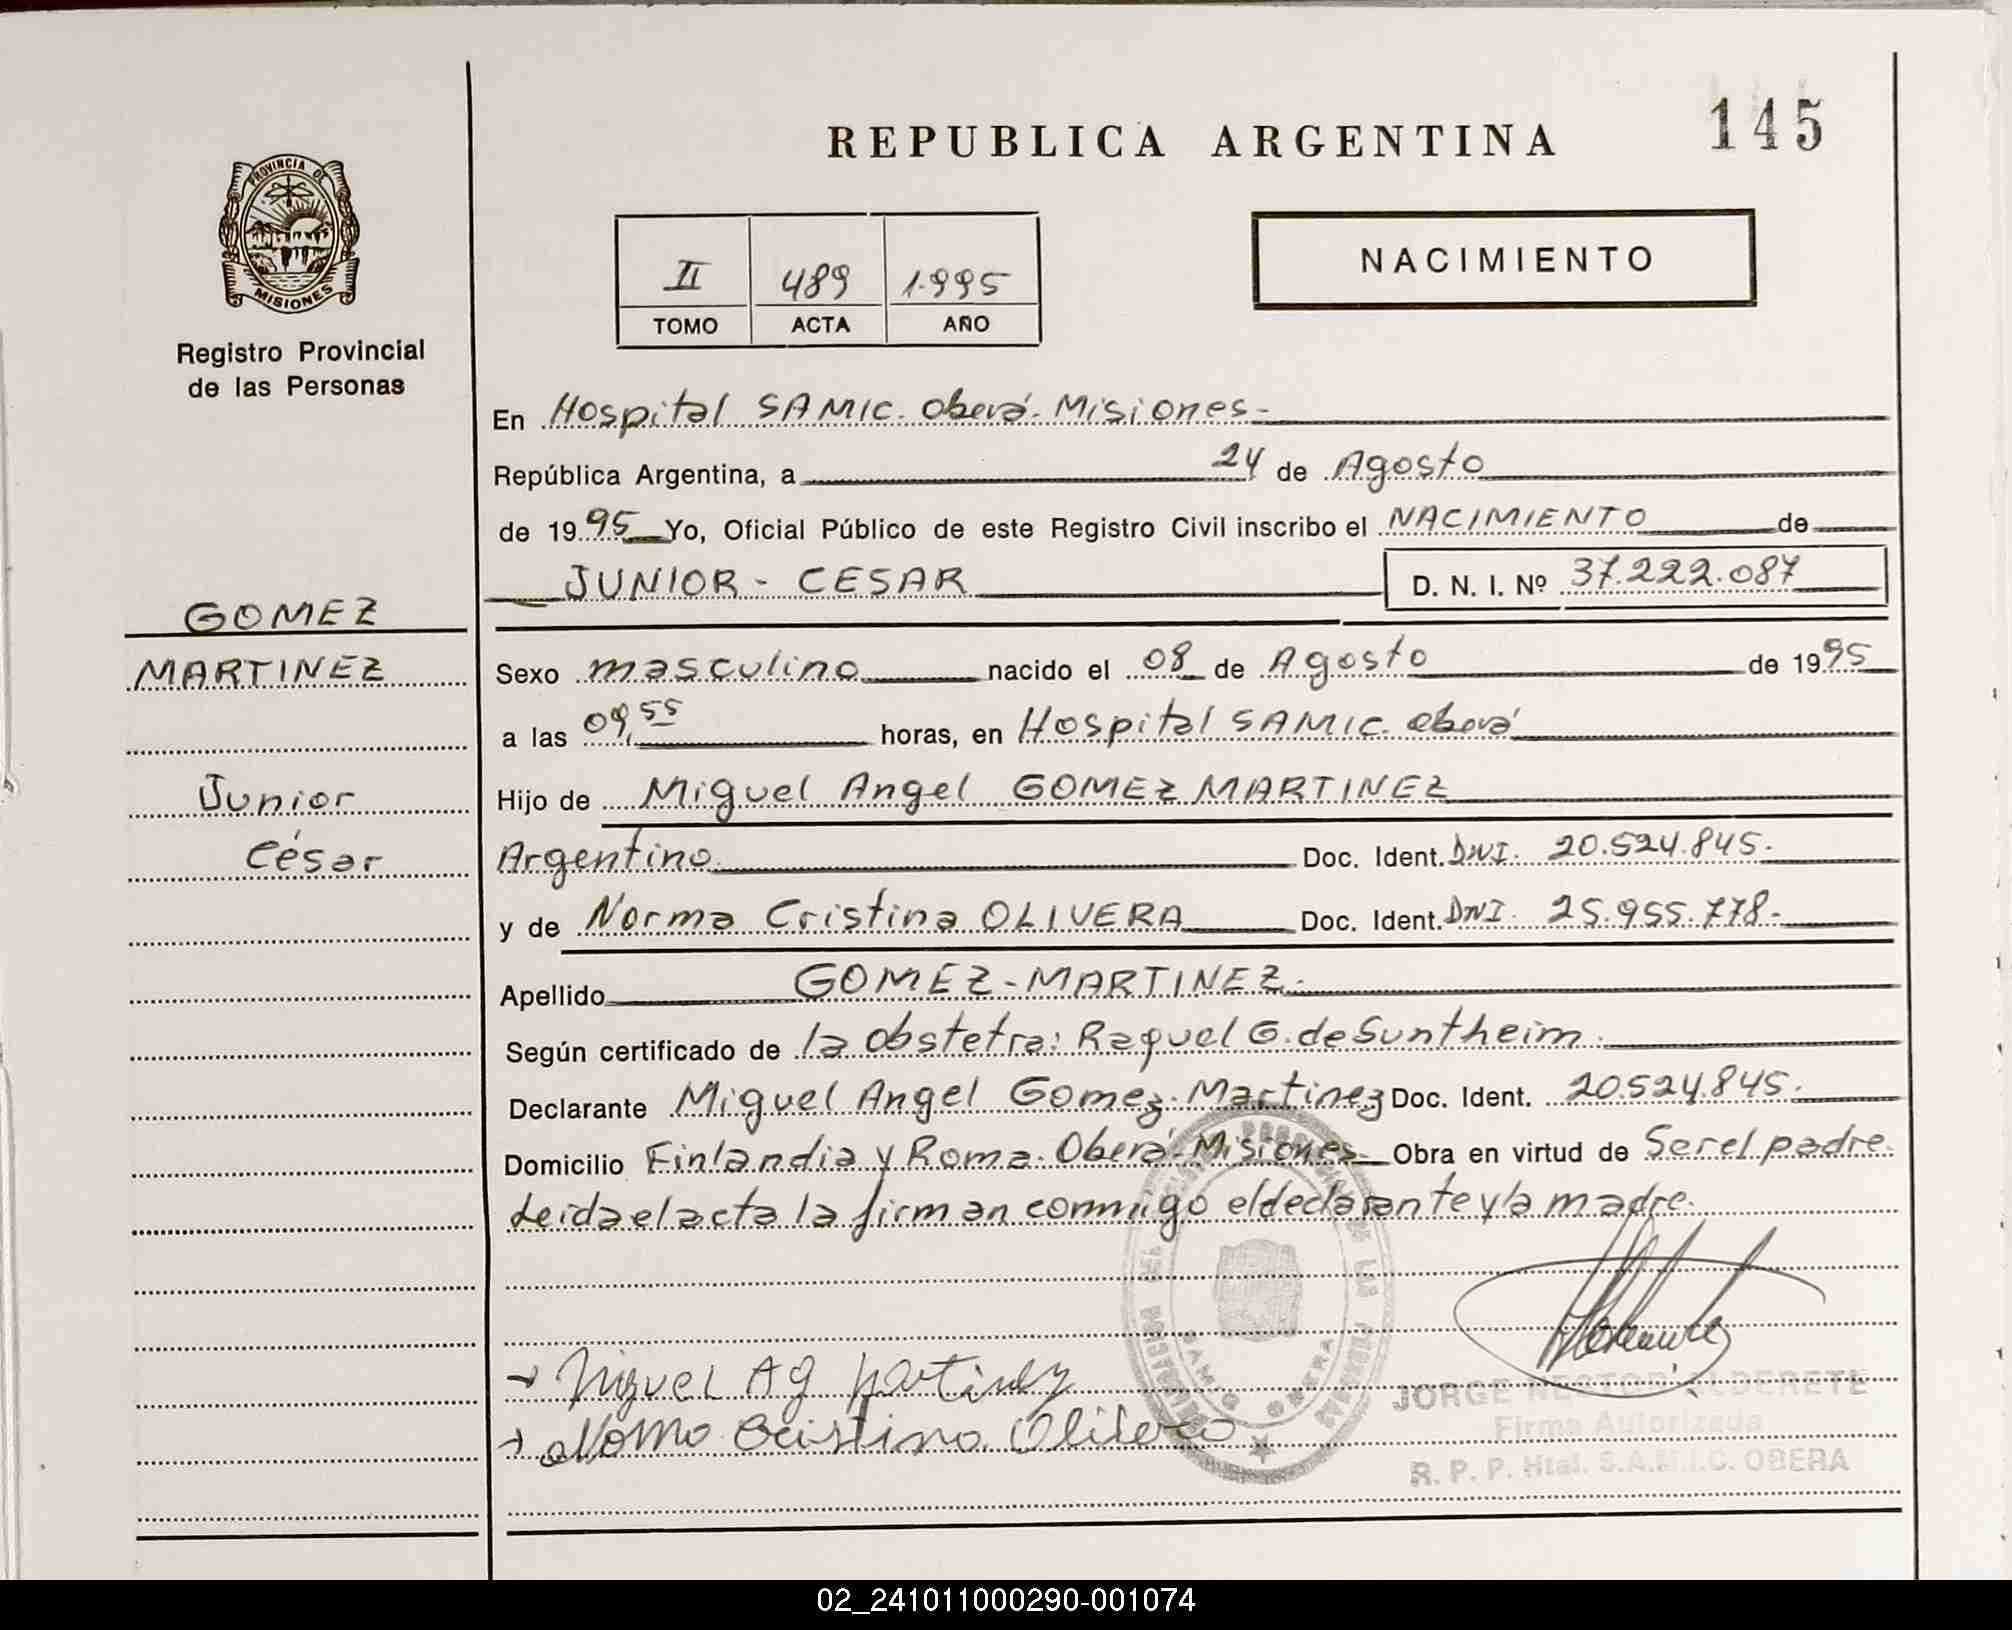 145
REPUBLICA ARGENTINA
PROVINCIA DE
MISIONES
Registro Provincial
de las Personas
NACIMIENTO
II 489 1.995
TOMO ACTA AÑO
En Hospital SAMIC. Oberá. Misiones-
República Argentina, a 24 de Agosto
de 1995 Yo, Oficial Público de este Registro Civil inscribo el NACIMIENTO de
JUNIOR - CESAR D. N. I. Nº 37.222.087
GOMEZ
MARTINEZ
Junior
César
Sexo masculino nacido el 08 de Agosto de 1995
a las 09,55 horas, en Hospital SAMIC. Oberá
Hijo de Miguel Angel GOMEZ MARTINEZ
Argentino Doc. Ident. DNI. 20.524.845.
y de Norma Cristina OLIVERA Doc. Ident. DNI. 25.955.778-
Apellido GOMEZ-MARTINEZ.
Según certificado de la obstetra: Raquel G. de Suntheim.
Declarante Miguel Angel Gomez Martinez Doc. Ident. 20.524.845.
Domicilio Finlandia y Roma. Oberá-Misiones- Obra en virtud de Ser el padre.
Leida el acta la firman conmigo el declarante y la madre.
→ Miguel Ag Martinez
→ Norma Cristina Olivera
JORGE NESTOR ALDERETE
Firma Autorizada
R. P. P. Htal. S.A.M.I.C. OBERA
02_241011000290-001074